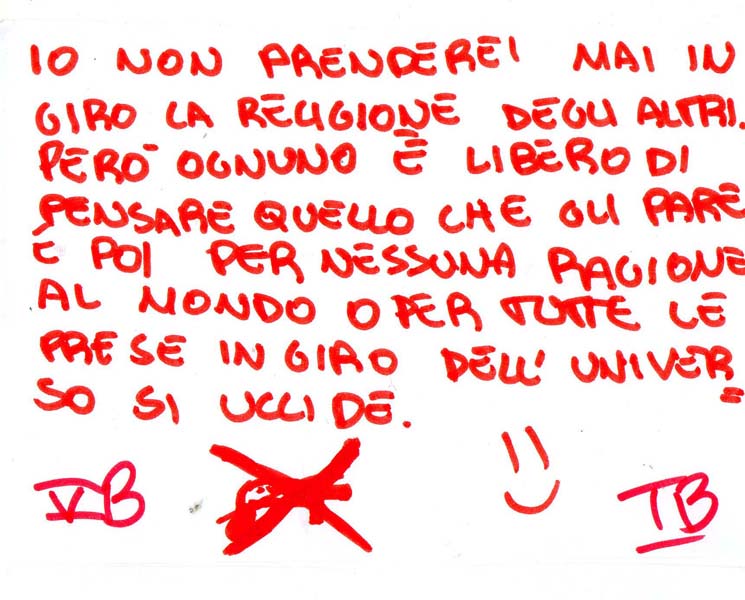 IO NON PRENDEREI MAI IN
GIRO LA RELIGIONE DEGLI ALTRI.
PERÒ OGNUNO È LIBERO DI
PENSARE QUELLO CHE GLI PARE
E POI PER NESSUNA RAGIONE
AL MONDO O PER TUTTE LE
PRESE IN GIRO DELL' UNIVER=
SO SI UCCIDE.
VB TB